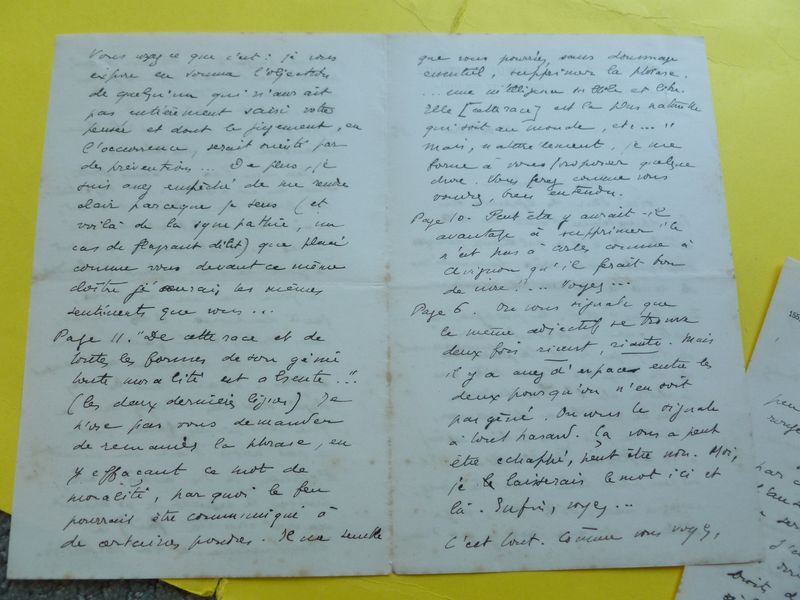 Vous voyez ce que c'est : je vous
expose en somme l'objection
de quelqu'un qui n'aurait
pas entièrement saisi votre
pensée et dont le jugement, en
l'occurrence, serait orienté par
des préventions... De plus, je
suis assez empêché de me rendre
clair parceque je sens (et
voilà de la sympathie, un
cas de flagrant délit) que placé
comme vous devant ce même
cloître j'aurais les mêmes
sentiments que vous...
Page 11. "De cette race et de
toutes les formes de son génie
toute moralité est absente..."
(les deux dernières lignes) Je
n'ose pas vous demander
de remanier la phrase, en
y effaçant ce mot de
moralité, par quoi le feu
pourrait être communiqué à
de certaines poudres. Il me semble
que vous pourriez, sans dommage
essentiel, supprimer la phrase.
...une intelligence et libre.
Elle [cette race] est la plus naturelle
qui soit au monde, etc...."
Mais, naturellement, je me
borne à vous proposer quelque
chose. Vous ferez comme vous
voudrez, bien entendu.
Page 10. Peut être y aurait-il
avantage à supprimer "ce
n'est pas à Arles comme à
Avignon qu'il ferait bon
de vivre"... Voyez...
Page 6. On vous signale que
le même adjectif se trouve
deux fois rient, riante. Mais
il y a assez d'espace entre les
deux pour qu'on n'en soit
pas gêné. On vous le signale
à tout hasard. Ça vous a peut
être échappé, peut être non. Moi,
je le laisserais le mot ici et
là. Enfin, voyez...
C'est tout. Comme vous voyez,
155
peu
par